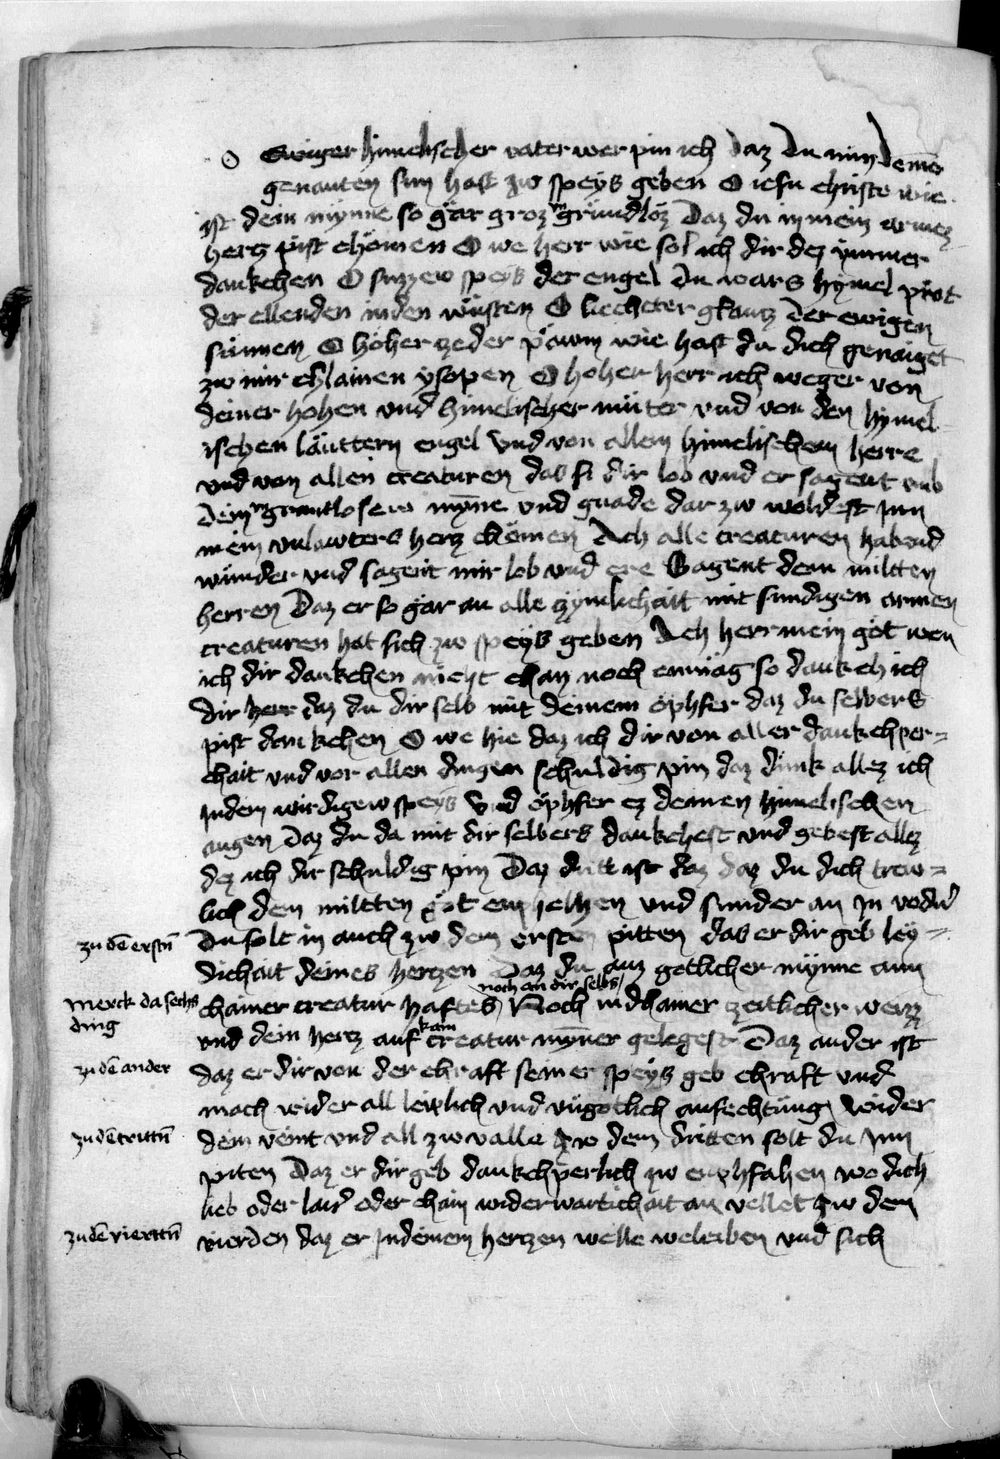 O Ewiger himelischer vater wer pin ich daz du mir deinē
genanten sun hast zw speys geben O iesu christe wie
ist dein mynne so gar groz vn̄ gründloz Daz du in mein armez
hertz pist chömen O we herr wie sol ich dir dez ymmer
dankchen O suzzew speys der engel du wars hymel prot
der ellenden in den wüsten O liechter glantz der ewigen
sunnen O höher zeder pawm wie hast du dich genaiget
zw mir chlainen ysopen O hoher herr ich weger von
deiner hohen und himelischer müter und von den hymel
ischen läuttern engel Und von allem himelischem herre
und von allen creaturen das si dir lob und er sagent umb
dein grantlosew mynne und gnade dar zw woldest Inn
mein unlawters hertz chömen Ach alle creaturen habend
wunder und sagent mir lob und ere Sagent dem miltten
herren Daz er so gar an alle zymlichait mit sundigen armen
creaturen hat sich zw speys geben Ach herr mein got wen
ich dir dankchen nicht chan noch enmag so dankch ich
dir herr daz du dir selb mit deinem ophfer daz du selbers
pist dankchen O we hie daz ich dir von aller dankchper=
chait und vor allen dingen schuldig pin daz dunk allez ich
In dem wirdigew speys Und öphfer ez deinen himelischen
augen Daz du da mit dir selbers dankchest und gebest allez
dez ich dir schuldig pin Daz dritt ist daz daz du dich trew=
lich dem miltten got enphelhen und sunder an In
zu dē erstn̄
Du solt in auch zw dem ersten pitten das er dir geb ley=
dichait deines hertzen Daz du auz gotlicher mynne ann
noch an dir selbs
Merck da sechs
ding
chainer creatur haftes Noch in chainer zeitlicher
kain
und dein hertz auf creatur mynner gelegest Daz ander ist
zu dē ander
daz er dir von der chraft seiner speys geb chraft und
mach wider all leiplich und ungotlich anfechtung wider
zu dē trittn̄
dein veint und all zwvalle Zw dem dritten solt du Inn
piten Daz er dir geb dankchperlich zw enphfahen wo dich
lieb oder laid oder chain widerwartichait an vellet Zw dem
zu dē viertn̄
vierden daz er In deinem hertzen welle weleiben und sich